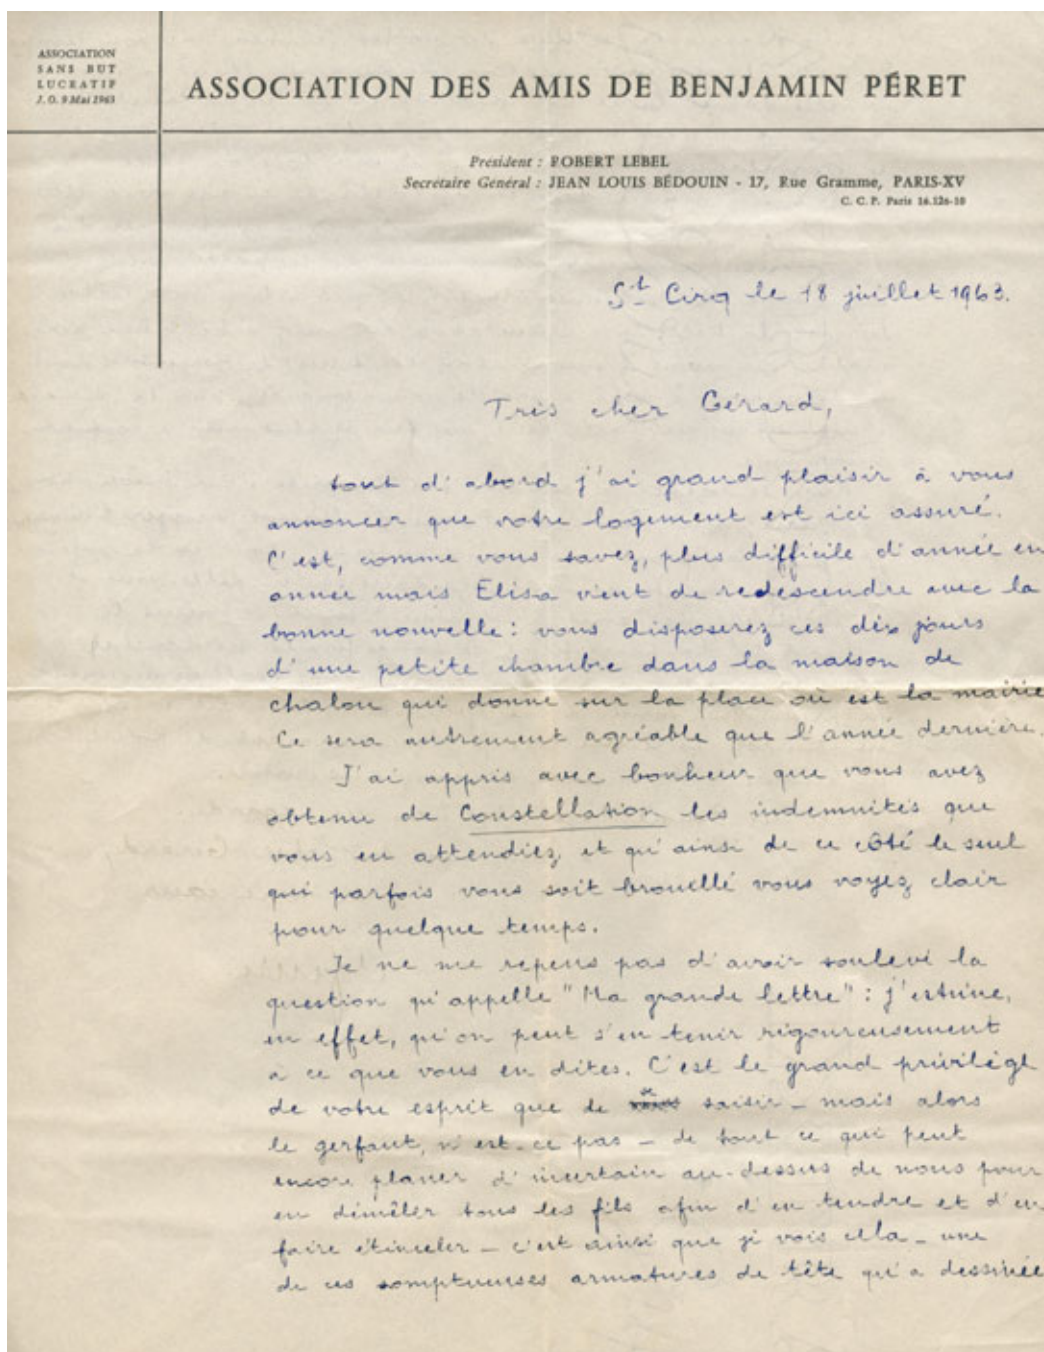 ASSOCIATION
SANS BUT
LUCRATIF
J. O. 9 Mai 1963
ASSOCIATION DES AMIS DE BENJAMIN PÉRET
Président : ROBERT LEBEL
Secrétaire Général : JEAN LOUIS BÉDOUIN - 17, Rue Gramme, PARIS-XV
C. C. P. Paris 16.126-10
St Cirq le 18 juillet 1963.
Très cher Gérard,
tout d'abord j'ai grand plaisir à vous
annoncer que votre logement est ici assuré.
C'est, comme vous savez, plus difficile d'année en
année mais Elisa vient de redescendre avec la
bonne nouvelle : vous disposerez ces dix jours
d'une petite chambre dans la maison de
chalou qui donne sur la place où est la mairie
Ce sera autrement agréable que l'année dernière.
J'ai appris avec bonheur que vous avez
obtenu de Constellation les indemnités que
vous en attendiez et qu'ainsi de ce côté le seul
qui parfois vous soit brouillé vous voyez clair
pour quelque temps.
Je ne me repens pas d'avoir soulevé la
question qu'appelle "Ma grande lettre" : j'estime,
en effet, qu'on peut s'en tenir rigoureusement
à ce que vous en dites. C'est le grand privilège
de votre esprit que de se saisir - mais alors
le gerfaut, n'est-ce pas - de tout ce qui peut
encore planer d'incertain au-dessus de nous pour
en démêler tous les fils afin d'en tendre et d'en
faire étinceler - c'est ainsi que je vois cela - une
de ces somptueuses armatures de tête qu'a dessinée